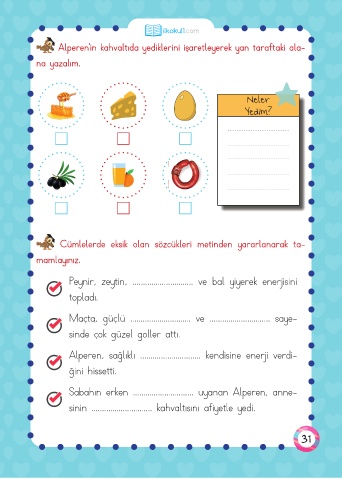 ilkokul1.com
Alperen'in kahvaltıda yediklerini işaretleyerek yan taraftaki ala-
na yazalım.
Neler
Yedim?
Cümlelerde eksik olan sözcükleri metinden yararlanarak ta-
mamlayınız.
Peynir, zeytin, ............................ ve bal yiyerek enerjisini
topladı.
Maçta, güçlü ............................ ve ............................ saye-
sinde çok güzel goller attı.
Alperen, sağlıklı ............................ kendisine enerji verdi-
ğini hissetti.
Sabahın erken ............................ uyanan Alperen, anne-
sinin ............................ kahvaltısını afiyetle yedi.
31